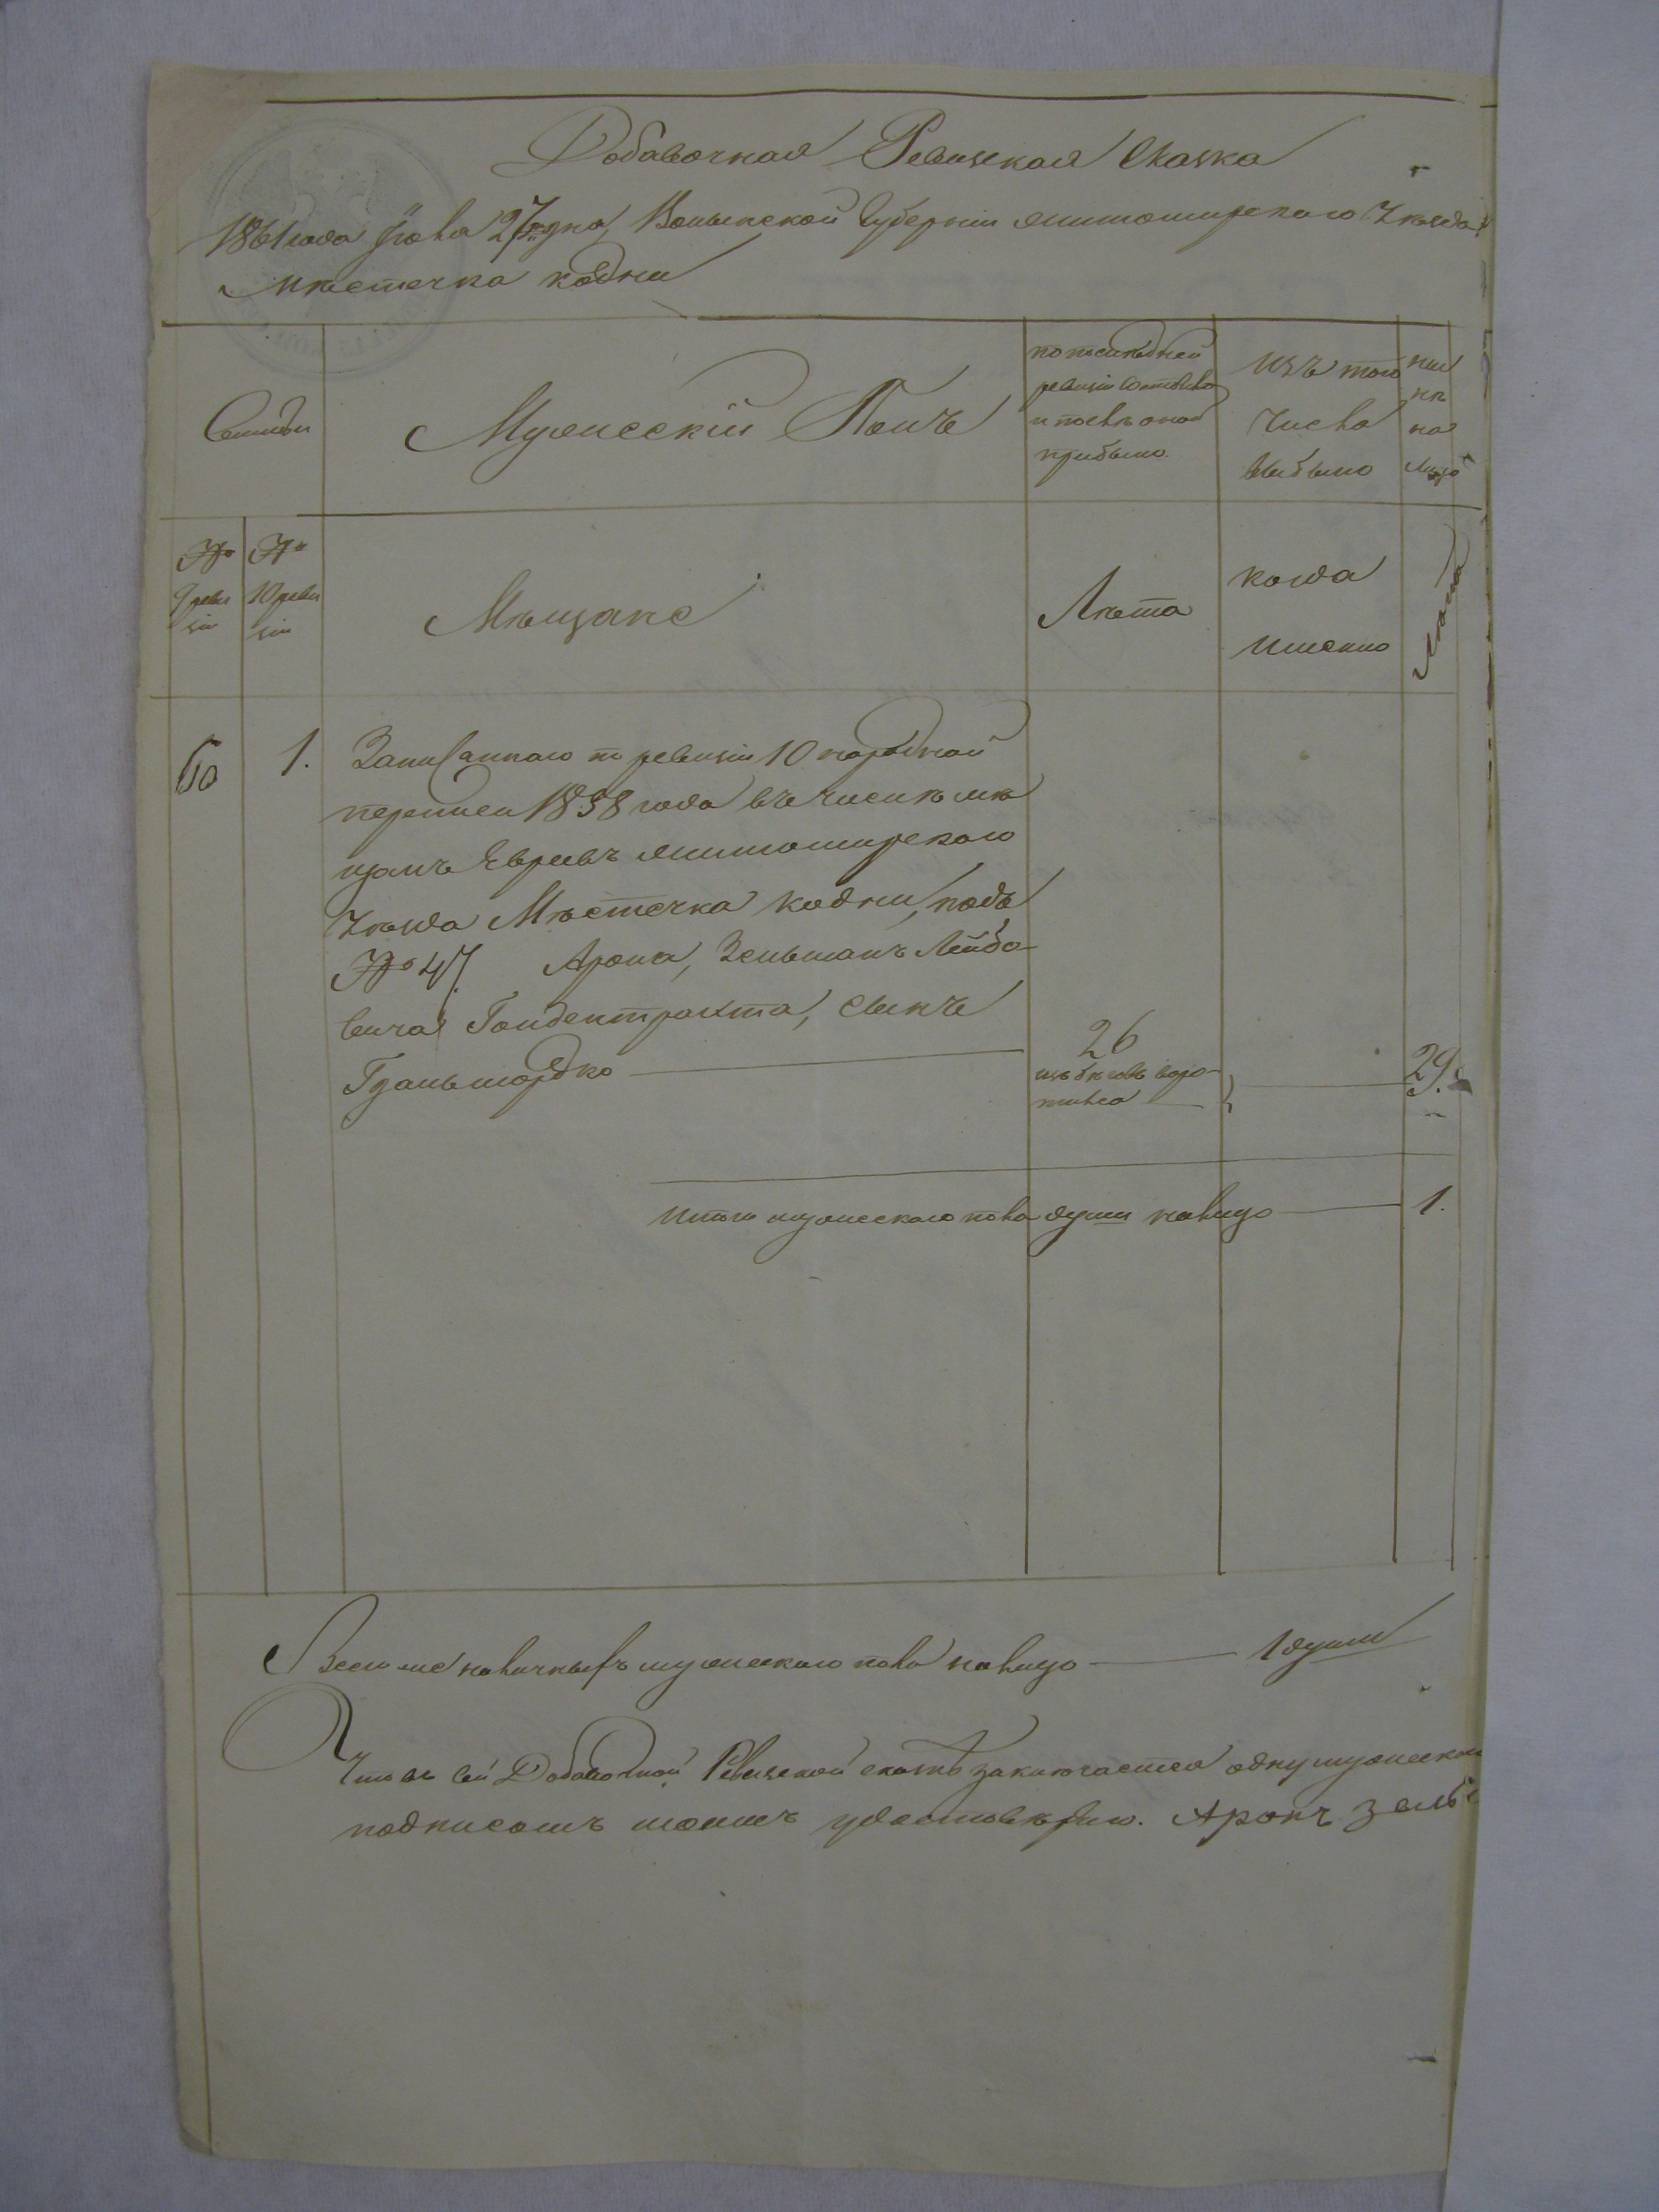 Добавочная Ревизская Сказка
1861 года Іюля 27 дня, Волынской Губерніи Житомирскаго Уѣзда
Мѣстечка Кодни
Семьи
Мужескій Полъ
по послѣдней
ревизіи состояло
и послѣ оной
прибыло.
изъ того
числа
выбыло
ны
нѣ
на
лицо
№
9 реви
зіи
№
10 реви
зіи
Мѣщане
Лѣта
когда
именно
Лѣта
60
1.
Записаннаго по ревизіи 10 народной
переписи 1858 года въ числѣ мѣ
щанъ Евреевъ Житомирскаго
Уѣзда Мѣстечка Кодни, подъ
№ 47. Арона, Зельманъ Лейбо-
вича Гольдентрахта, сынъ
Гдальмордко
26
изъ бѣговъ воро
тился
29.
Итого мужескаго пола души налицо
1.
Всего же наличныхъ мужескаго пола налицо — 1 души
Что въ сей Добавочной Ревизской сказкѣ заключается одну мужеск
подписомъ моимъ удостовѣряю. Аронъ Зель